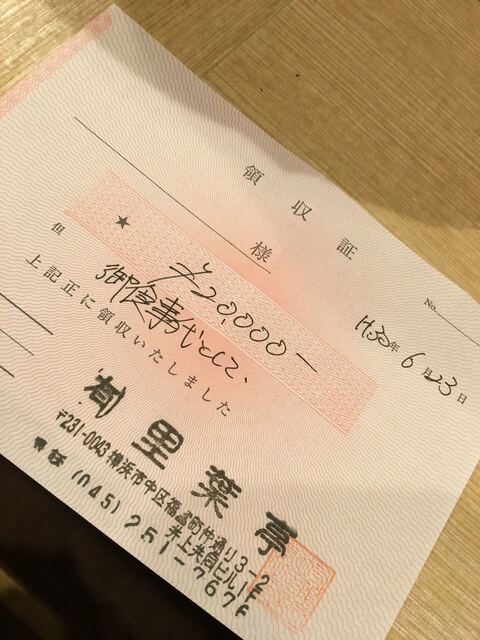 領収証
No.
H30年6月23日
様
★ ¥20,000ー
但 御食事代として、
上記正に領収いたしました
里葉亭
〒231-0043 横浜市中区福富町仲通り3-2
井上共自ビル1F
電話 (045) 251-7676